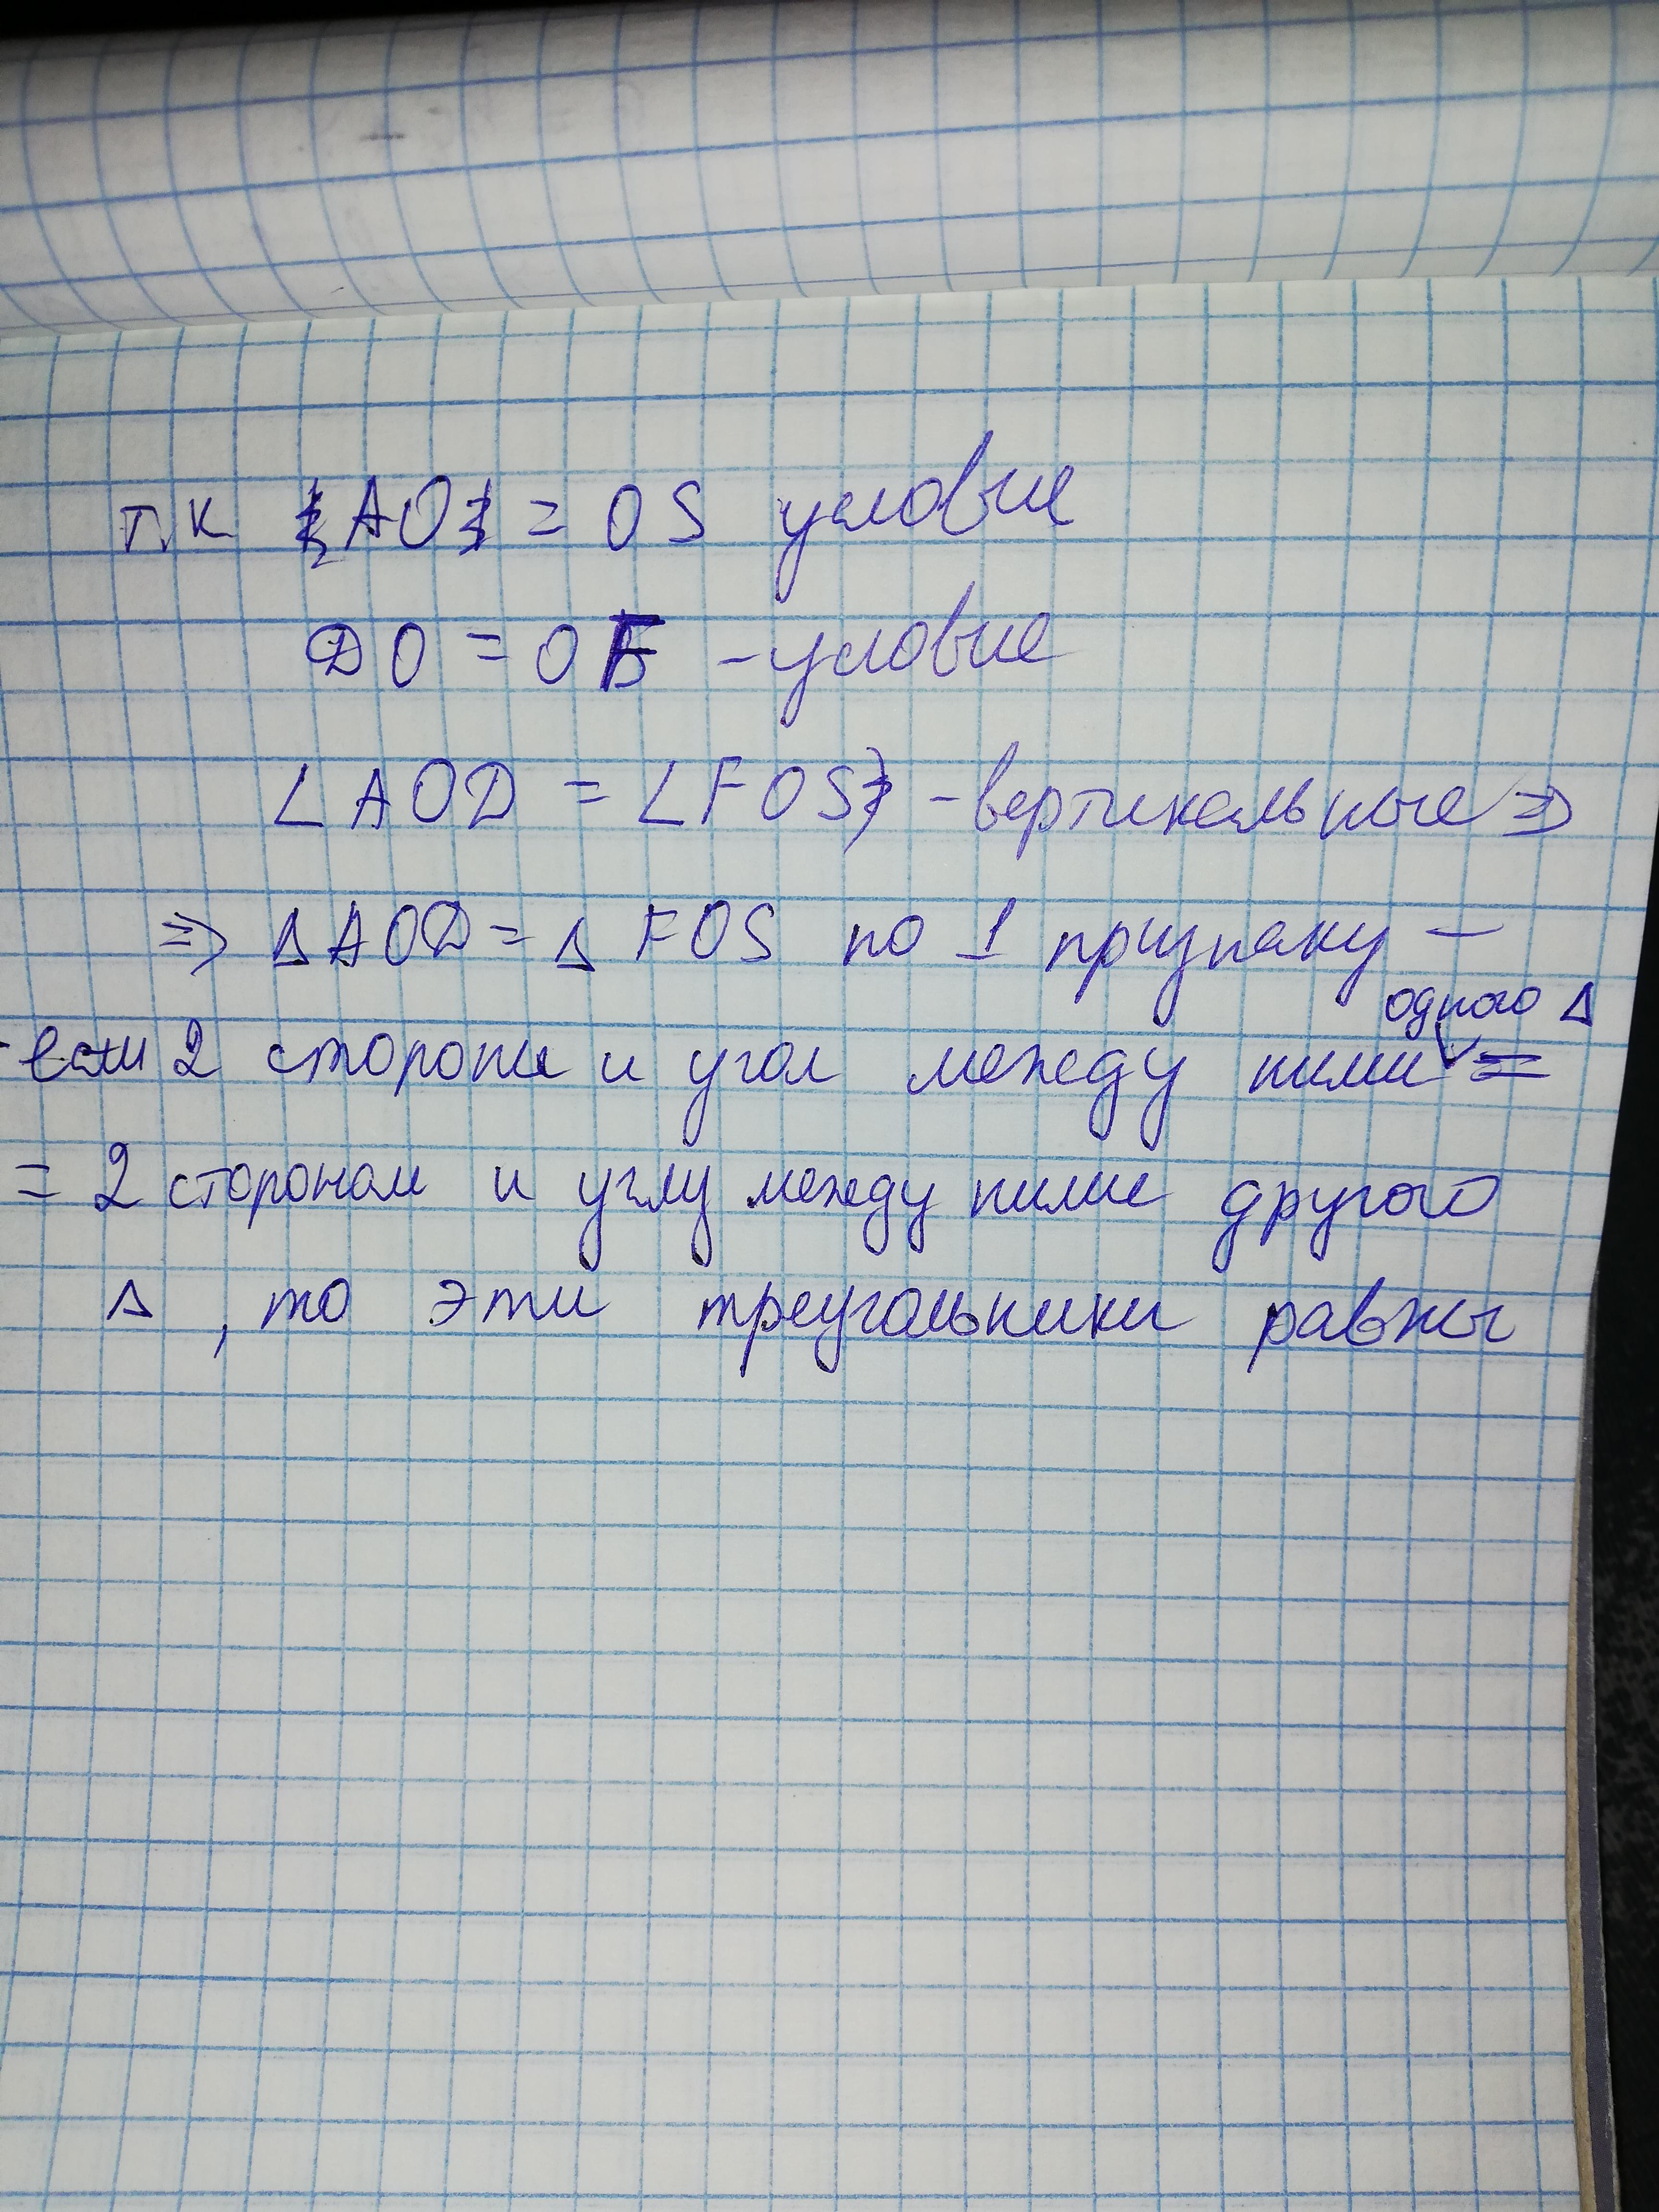 т.к AO = OS условие
DO = OF - условие
∠AOD = ∠FOS - вертикальные =>
=> ΔAOD = Δ FOS по 1 признаку -
одного Δ
- если 2 стороны и угол между ними =
= 2 сторонам и углу между ними другого
Δ, то эти треугольники равны